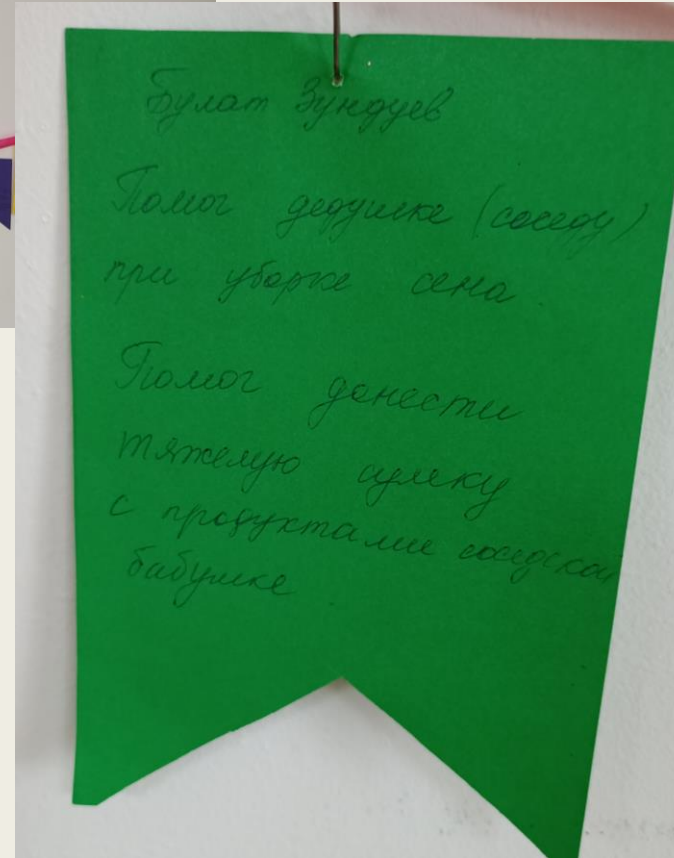 Булат Зундуев
Помог дедушке (соседу)
при уборке сена
Помог донести
тяжелую сумку
с продуктами соседской
бабушке